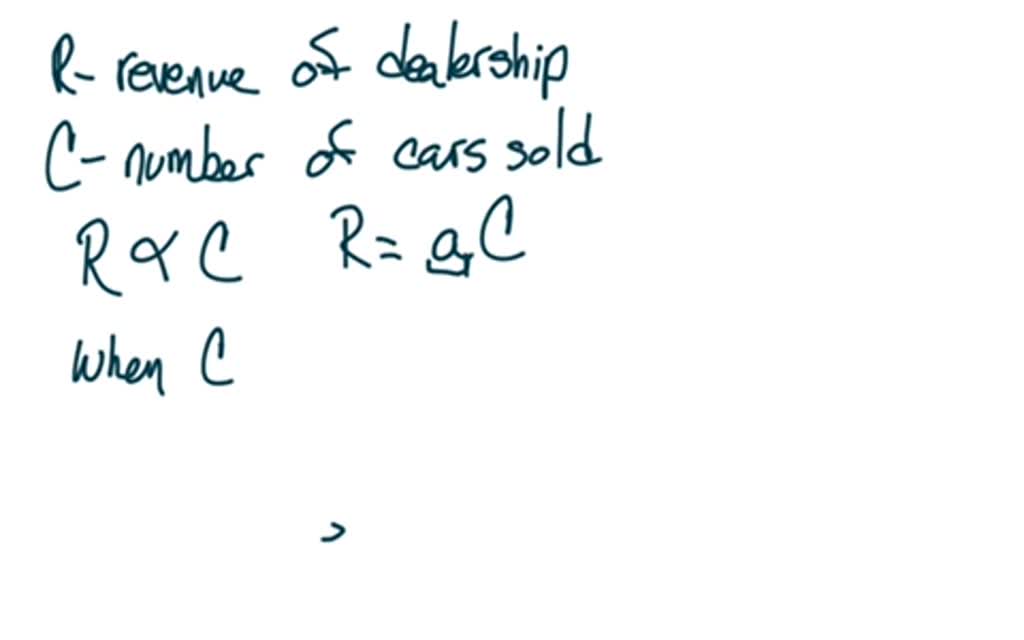 R- revenue of dealership
C- number of cars sold
R ∝ C R = a C
When C